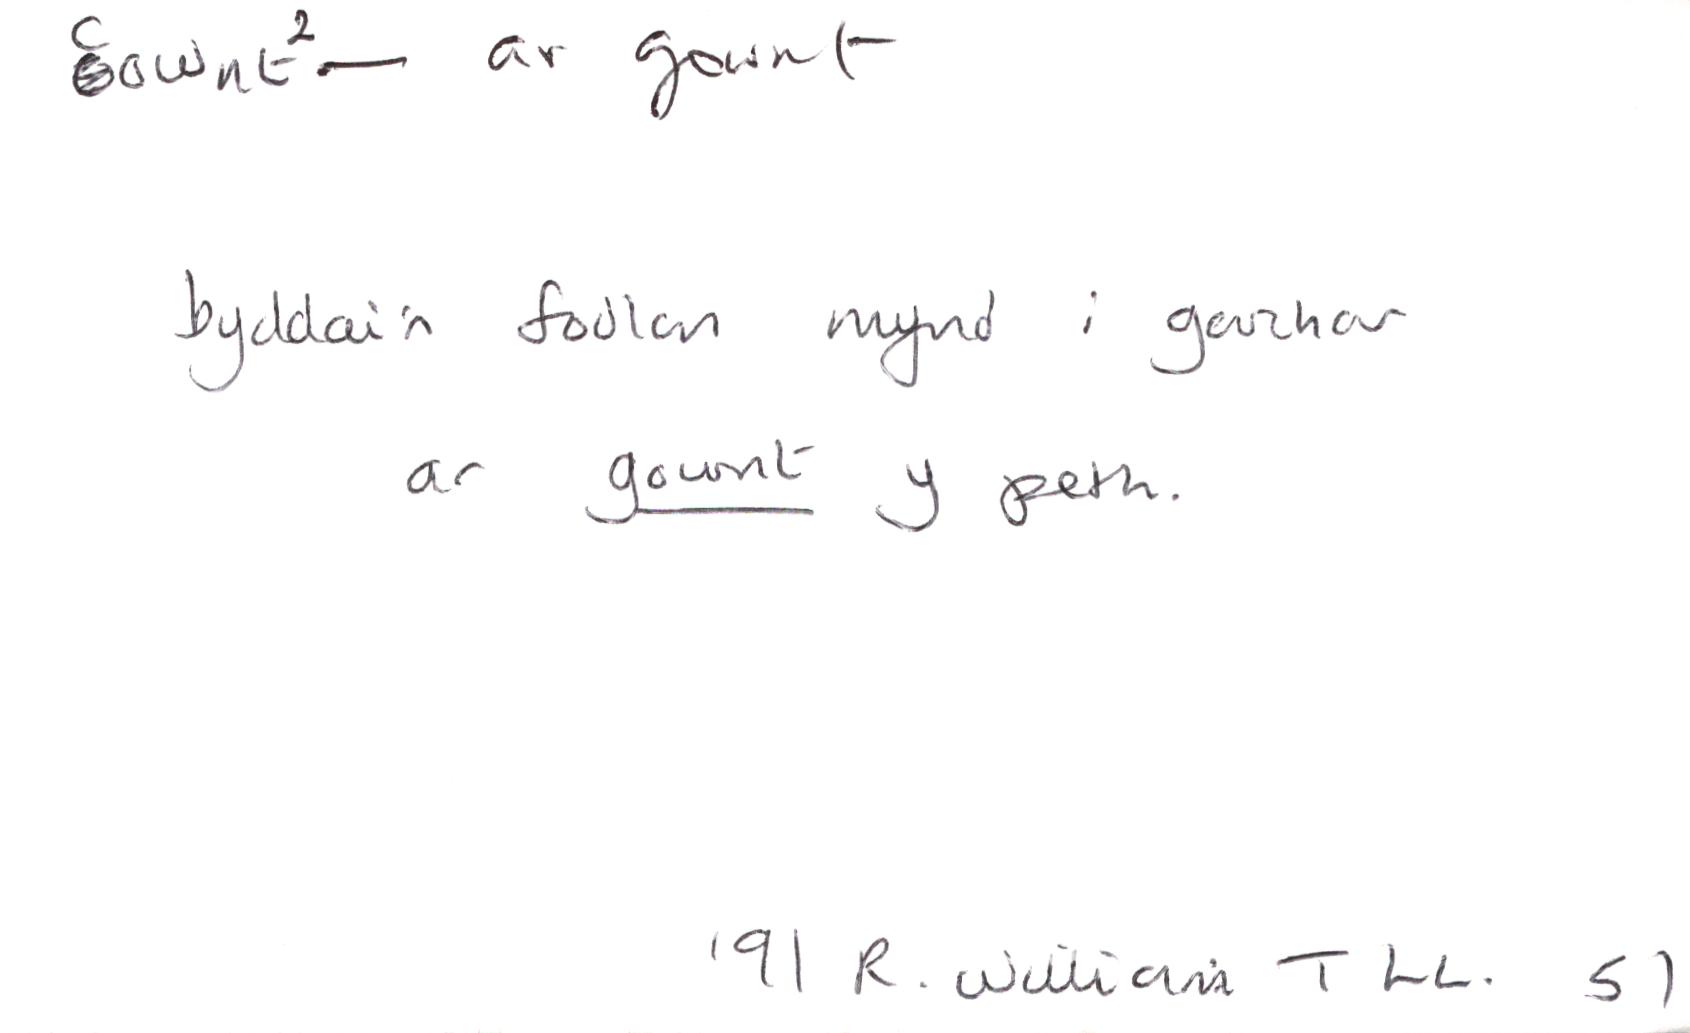 Cownt² — ar gownt
byddai'n fodlon mynd i garchar
ar gownt y peth.
'91 R. Williams TLL. 57